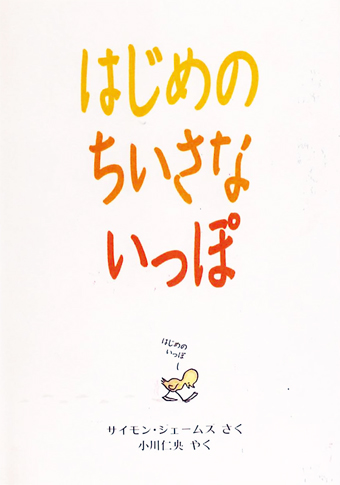 はじめの
ちいさな
いっぽ
はじめの
いっぽ
サイモン・ジェームズ さく
小川仁央 やく